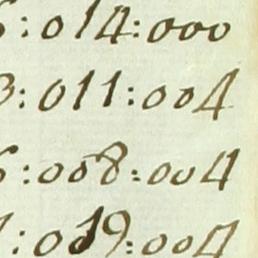 :014:000
3:011:004
:008:004
:019:004